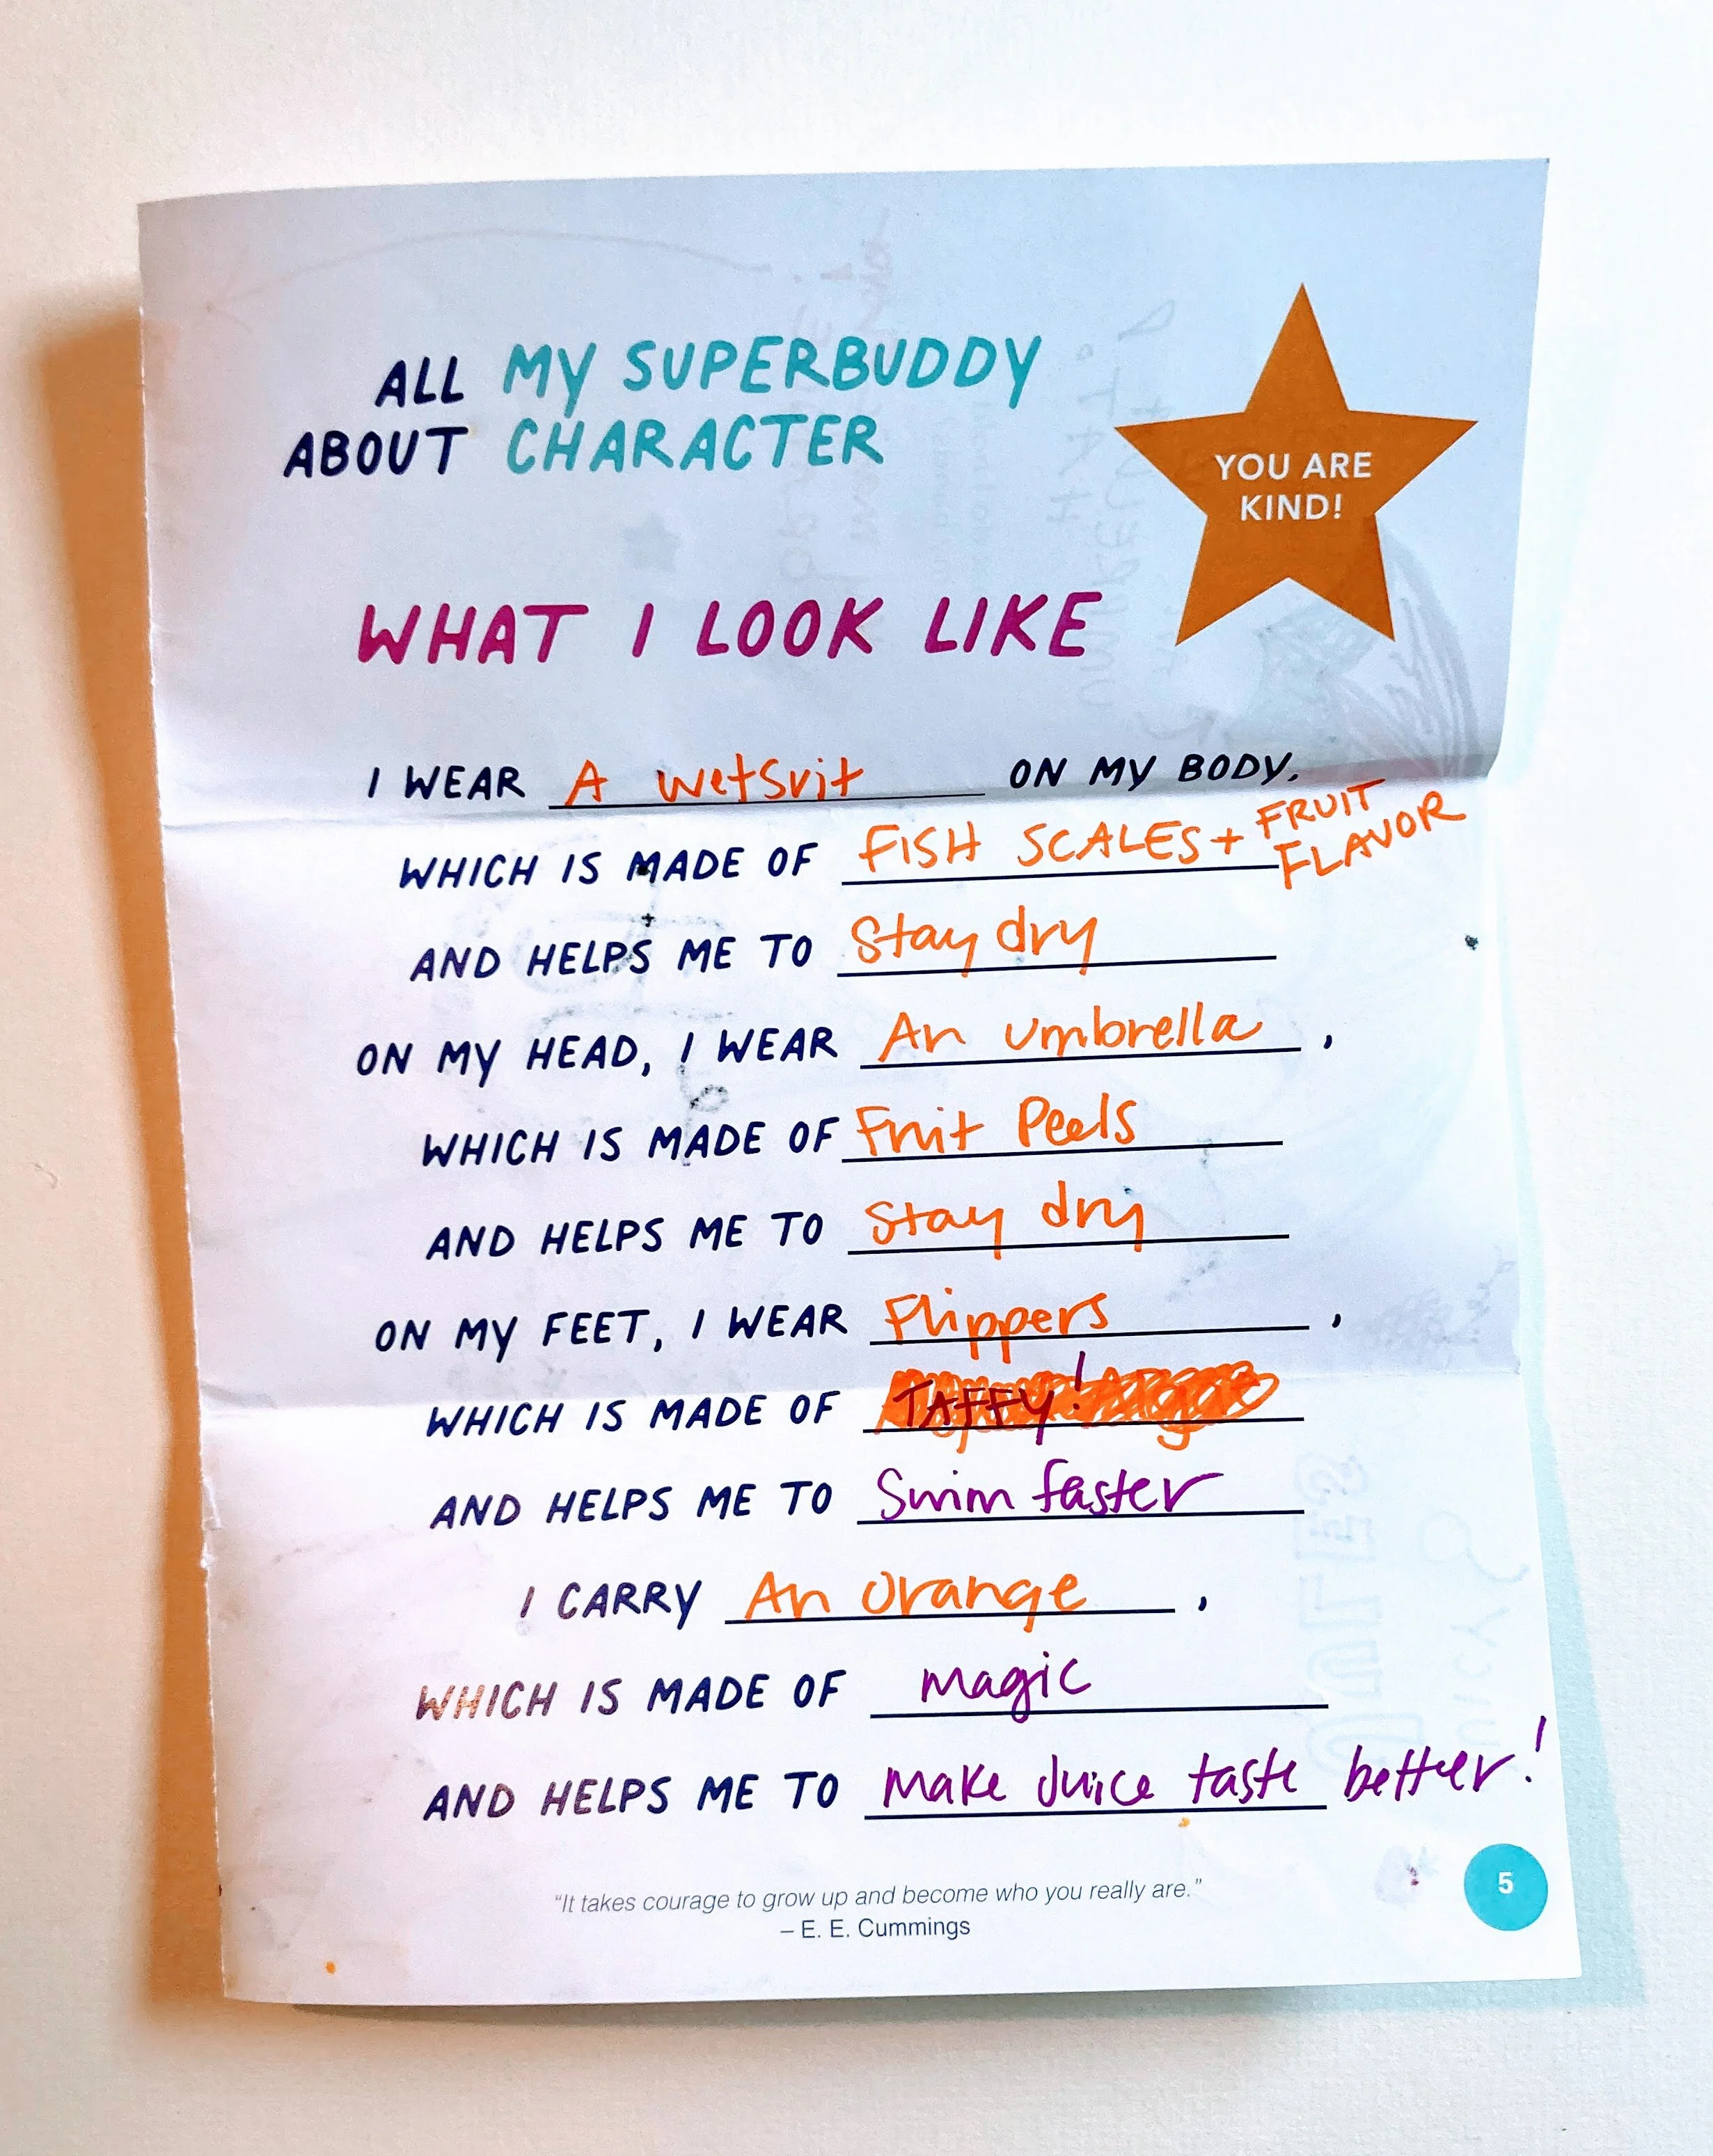 ALL MY SUPERBUDDY
ABOUT CHARACTER
YOU ARE
KIND!
WHAT I LOOK LIKE
I WEAR A wetsuit ON MY BODY,
WHICH IS MADE OF FISH SCALES + FRUIT
FLAVOR
AND HELPS ME TO Stay dry
ON MY HEAD, I WEAR An umbrella ,
WHICH IS MADE OF Fruit Peels
AND HELPS ME TO Stay dry
ON MY FEET, I WEAR Flippers ,
WHICH IS MADE OF TAFFY!
AND HELPS ME TO Swim faster
I CARRY An Orange ,
WHICH IS MADE OF magic
AND HELPS ME TO make Juice taste better!
"It takes courage to grow up and become who you really are."
– E. E. Cummings
5